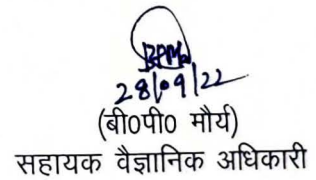 BPM
28/09/22
(बी0पी0 मौर्य)
सहायक वैज्ञानिक अधिकारी